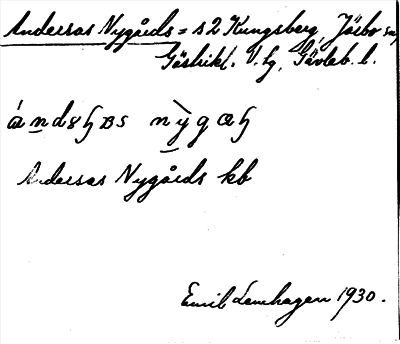 Andersas Nygårds = s2 Kungsberg, Järbo sn,
Gästrikl. V. hg, Gävleb. l.
nyg
Andersas Nygårds kb
Emil Lemhagen 1930.